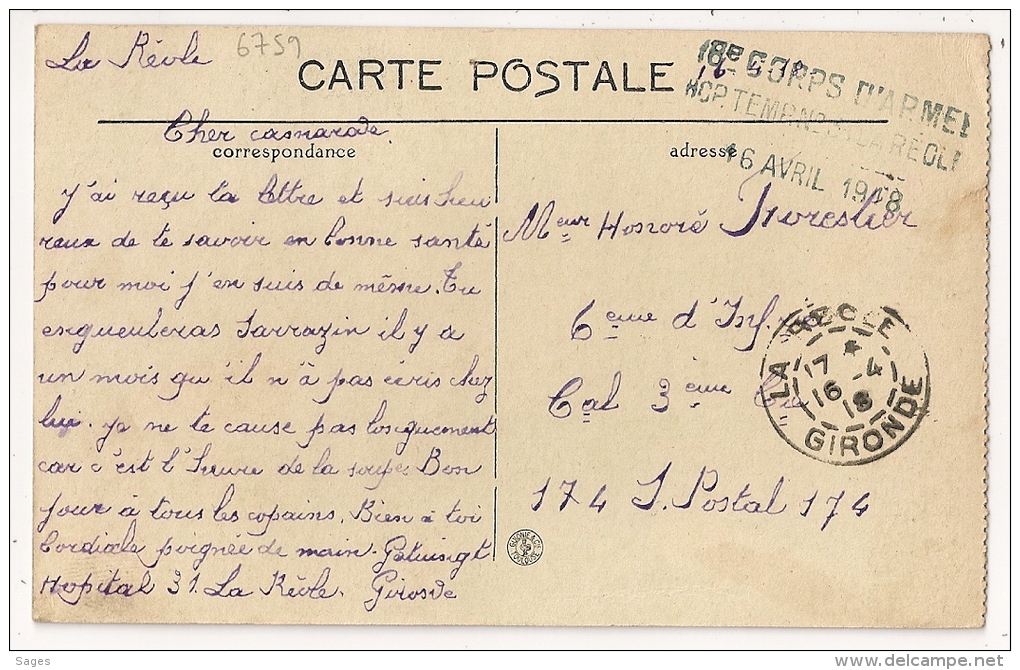 La Réole
6759
16 - 4 - 18
CARTE POSTALE
18e CORPS D'ARMEE
HOP. TEMP. LA REOLE
16 AVRIL 1918
Cher camarade.
correspondance
adresse
J'ai reçu ta lettre et suis heu
reux de te savoir en bonne santé
pour moi j'en suis de même. Tu
engueuleras Sarrazin il y a
un mois qu'il n'a pas écris chez
lui. je ne te cause pas longuement
car c'est l'heure de la soupe Bon
jour à tous les copains. Bien à toi
Cordiale poignée de main.
Hopital 31. La Réole. Gironde
Meur Honoré Forestier
6eme d'Inf.
3eme Cie
174 S. Postal 174
LA REOLE
17 *
16 -4
18
GIRONDE
GUIONIE & Cie
TOULOUSE
Sages
delcampe.net